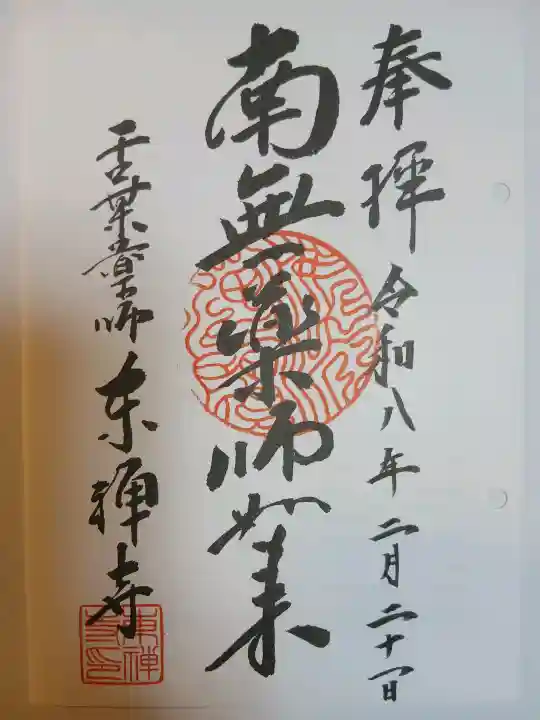 奉拝 令和八年二月二十一日
南無薬師如来
葉薬師 東禅寺
東禅寺印